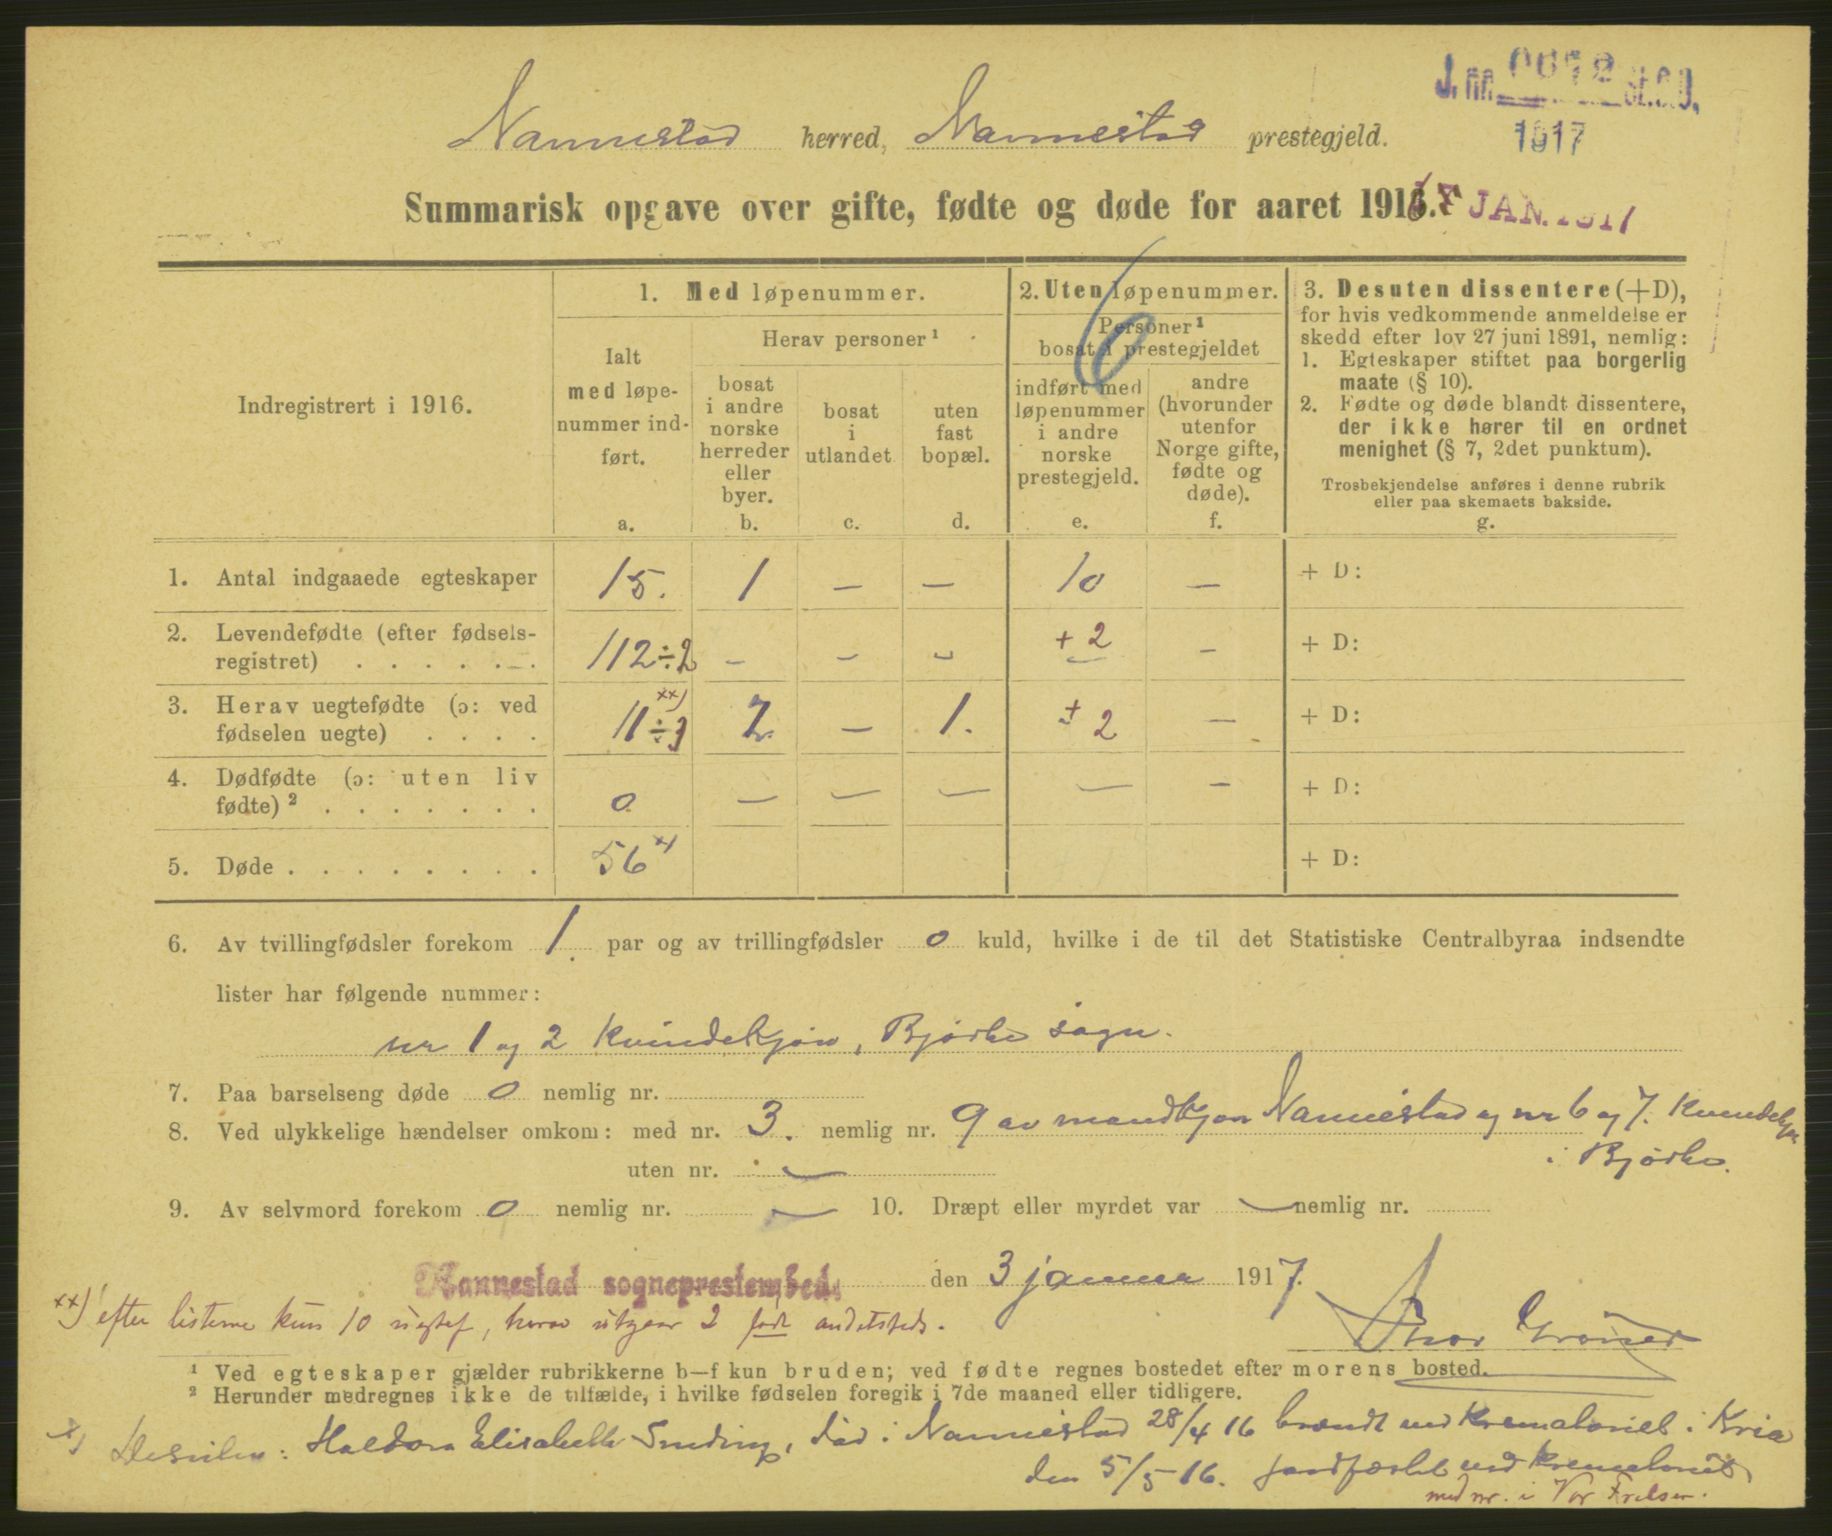 J. no. St. C. B.
1917
Nannestad herred, Nannestad prestegjeld.
Summarisk opgave over gifte, fødte og døde for aaret 1916.
JAN. 1917
6
Indregistrert i 1916.
1. Med løpenummer.
Ialt
med løpe-
nummer ind-
ført.
a.
Herav personer ¹
bosat
i andre
norske
herreder
eller
byer.
b.
bosat
i
utlandet
c.
uten
fast
bopæl.
d.
2. Uten løpenummer.
Personer ¹
bosat i prestegjeldet
indført med
løpenummer
i andre
norske
prestegjeld.
e.
andre
(hvorunder
utenfor
Norge gifte,
fødte og
døde).
f.
3. Desuten dissentere (+D),
for hvis vedkommende anmeldelse er
skedd efter lov 27 juni 1891, nemlig:
1. Egteskaper stiftet paa borgerlig
maate (§ 10).
2. Fødte og døde blandt dissentere,
der ikke hører til en ordnet
menighet (§ 7, 2det punktum).
Trosbekjendelse anføres i denne rubrik
eller paa skemaets bakside.
g.
1. Antal indgaaede egteskaper 15. 1 — — 10 — + D:
2. Levendefødte (efter fødsels-
registret) . . . . . . . 112÷2 – – – + 2 – + D:
3. Herav uegtefødte (ɔ: ved
fødselen uegte) . . . . 11÷ xx) 2 — 1. + 2 — + D:
4. Dødfødte (ɔ: uten liv
fødte) ² . . . . . . . 0 — — — — — + D:
5. Døde . . . . . . . . . 56 x) + D:
6. Av tvillingfødsler forekom 1. par og av trillingfødsler 0 kuld, hvilke i de til det Statistiske Centralbyraa indsendte
lister har følgende nummer:
nr 1 og 2 Kvindekjøn, Bjørke sogn.
7. Paa barselseng døde 0 nemlig nr.
8. Ved ulykkelige hændelser omkom: med nr. 3. nemlig nr. 9 av mandkjøn Nannestad og nr 6 og 7. Kvindekjøn
i Bjørke.
uten nr. —
9. Av selvmord forekom 0 nemlig nr. — 10. Dræpt eller myrdet var — nemlig nr.
Nannestad sogneprestembede den 3 januar 1917.
xx) efter listerne kun 10 uegtef, herav utgaar 2 født andetsteds.
¹ Ved egteskaper gjælder rubrikkerne b—f kun bruden; ved fødte regnes bostedet efter morens bosted.
² Herunder medregnes ikke de tilfælde, i hvilke fødselen foregik i 7de maaned eller tidligere.
x) Desuten: Haldora Elisabeth Sinding, død i Nannestad 28/4 16 brændt ved Krematoriet i Kria
den 5/5 16. jordfæstet ved krematoriet
med nr. i Vor Frelser.